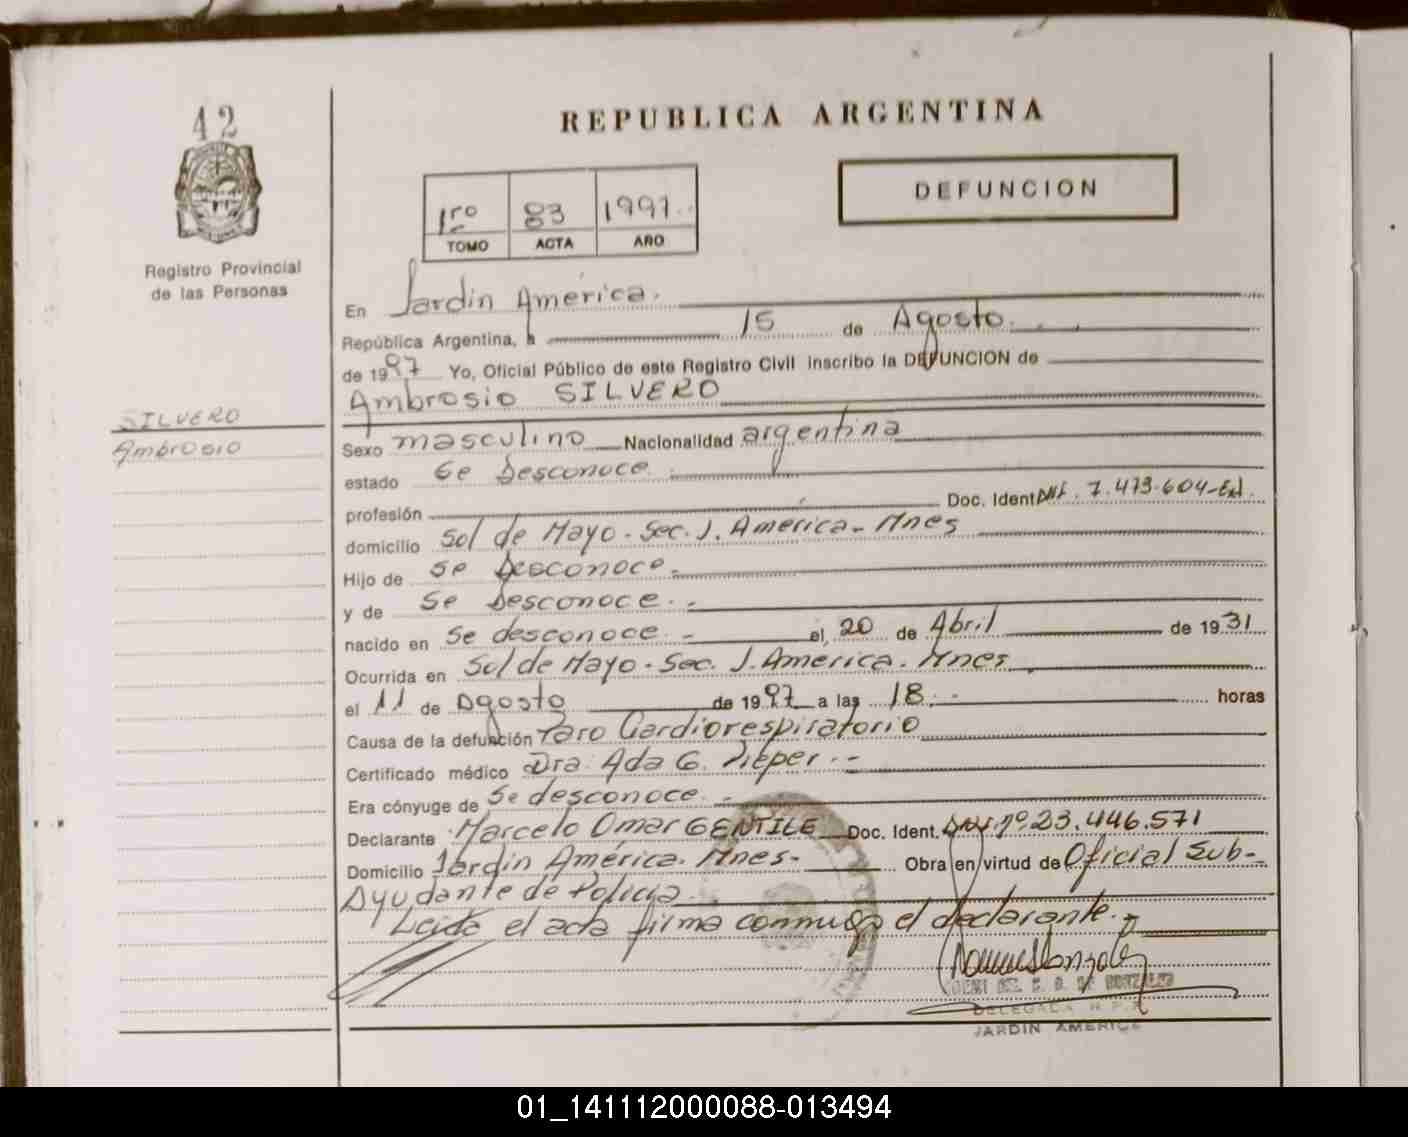 42
REPUBLICA ARGENTINA
DEFUNCION
1ro 83 1997
TOMO ACTA AÑO
Registro Provincial
de las Personas
En Jardín América.
República Argentina, a 15 de Agosto.
de 1997 Yo, Oficial Público de este Registro Civil inscribo la DEFUNCION de
Ambrosio SILVERO
SILVERO
Ambrosio
Sexo masculino Nacionalidad argentina
estado Se Desconoce
profesión Doc. Ident DNI. 7.473.604-Ext.
domicilio Sol de Mayo. Sec. J. América - Mnes
Hijo de Se Desconoce.
y de Se Desconoce.
nacido en Se desconoce. el, 20 de Abril de 1931
Ocurrida en Sol de Mayo. Sec. J. América. Mnes
el 11 de Agosto de 1997 a las 18. horas
Causa de la defunción Paro Cardiorespiratorio
Certificado médico Dra. Ada G. Pieper.
Era cónyuge de Se desconoce.
Declarante Marcelo Omar GENTILE Doc. Ident. DNI. nº 23.446.571
Domicilio Jardín América. Mnes- Obra en virtud de Oficial Sub-
Ayudante de Policía.
Leída el acta firma conmigo el declarante.
DE GONZALEZ
DELEGADA R.P.P.
JARDIN AMERICA
01_141112000088-013494